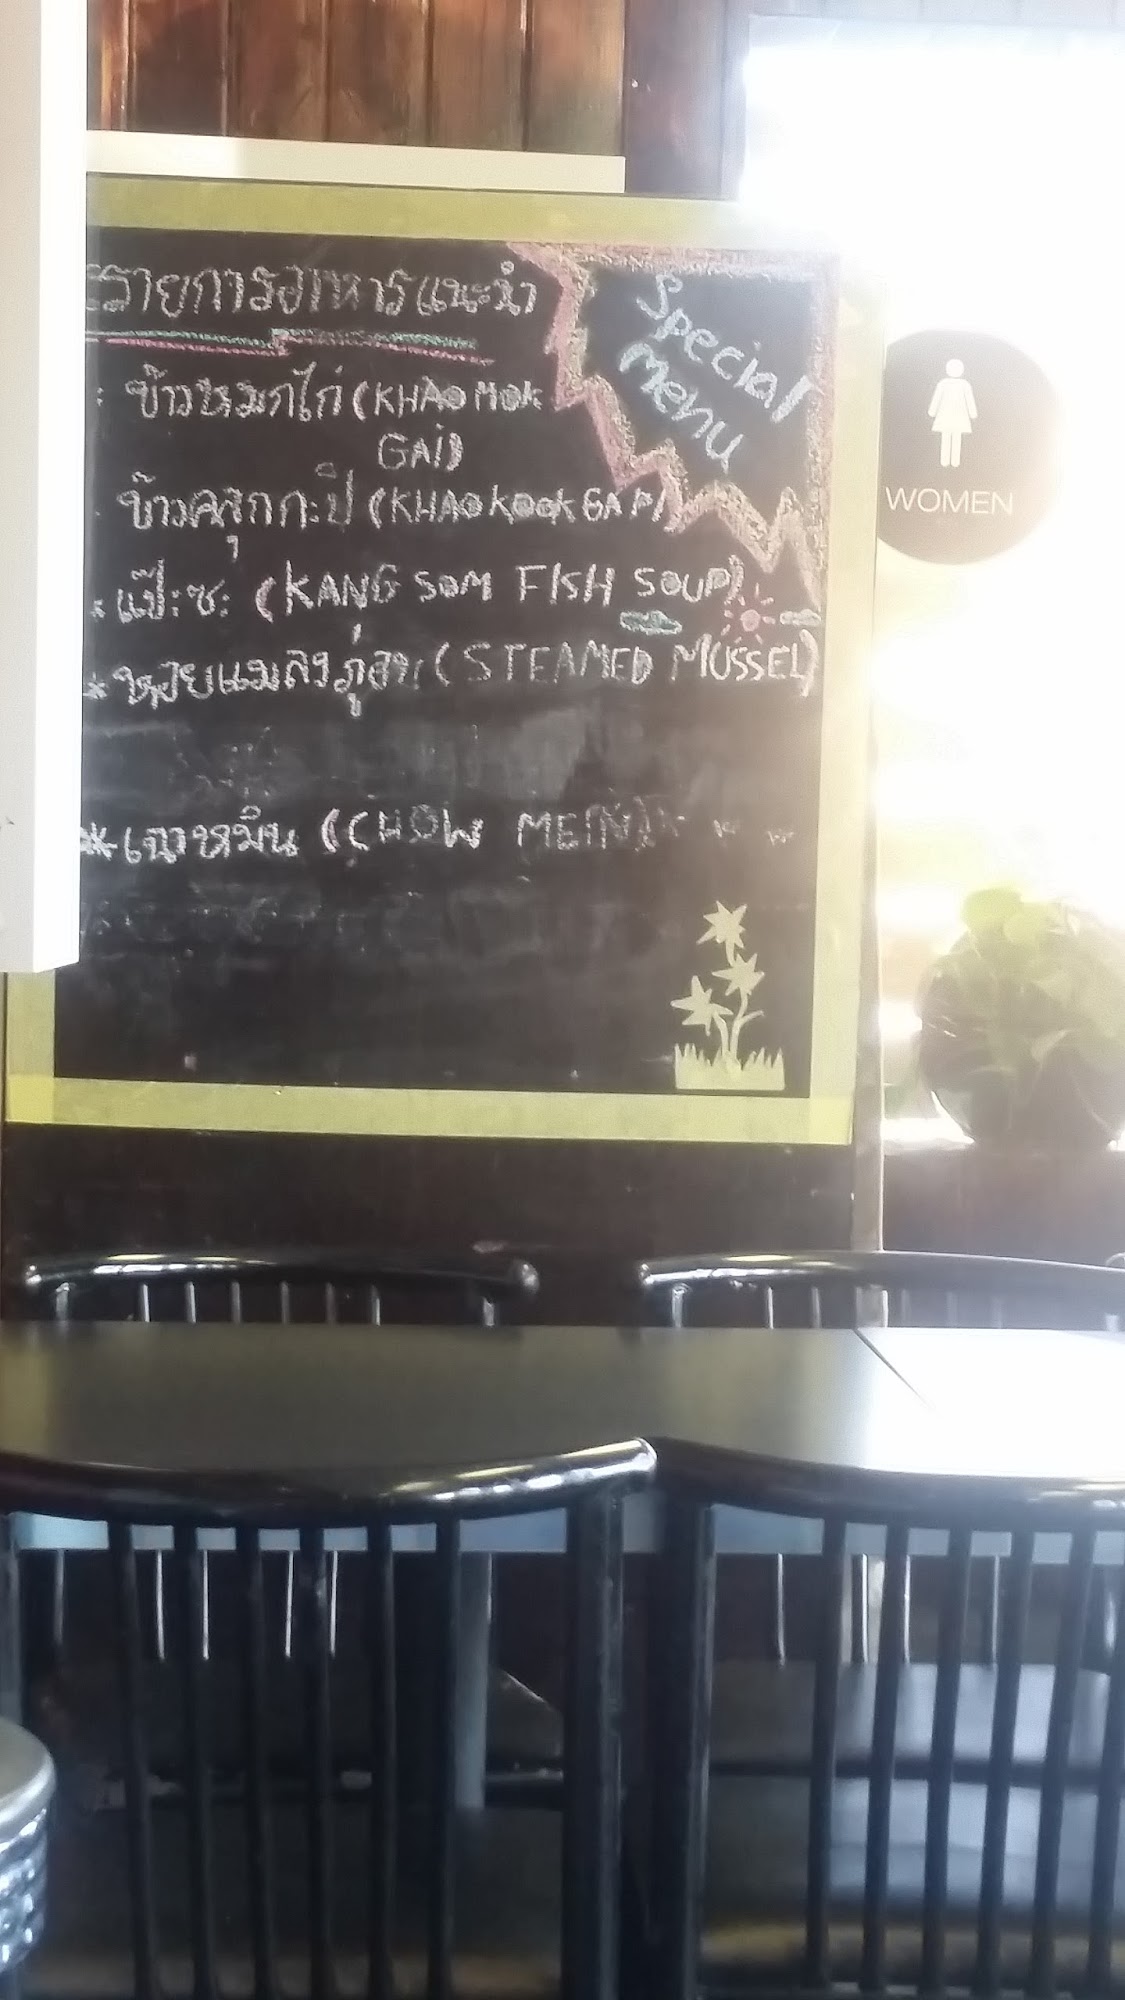 รายการอาหารแนะนำ
Special
Menu
ข้าวหมกไก่ (KHAO MOK
GAI)
ข้าวคลุกกะปิ (KHAO KOOK GAPI
* แป๊ะซะ (KANG SOM FISH SOUP)
* หอยแมลงภู่อบ (STEAMED MUSSEL)
* เฉาหมิ่น (CHOW MEIN)
WOMEN